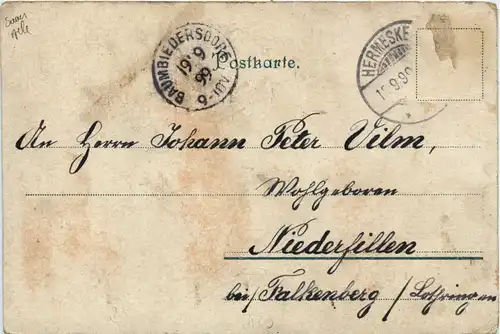 Postkarte.
BAUMBIEDERSDORF
19 9
99
HERMESKE
9.99
An Herrn Johann Peter Vilm,
Wohlgeboren
Niederfillen
bei/Falkenberg / Lothringen